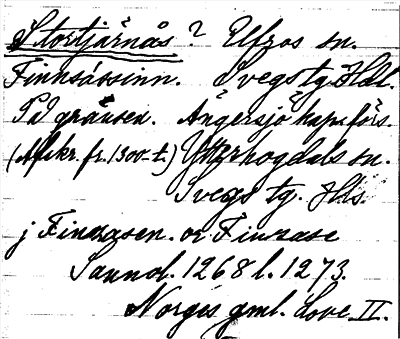 Stortjärnås? Ytros sn.
Finnsåssinn. Svegs tg. Hdl.
På gränsen. Ängersjö kapsförs.
(Afskr. fr. 1300-t.) Ytterhogdals sn.
Svegs tg. Hls.
j Finnasen. or Finnase
Sannol. 1268 l. 1273.
Norges gml. Love II.